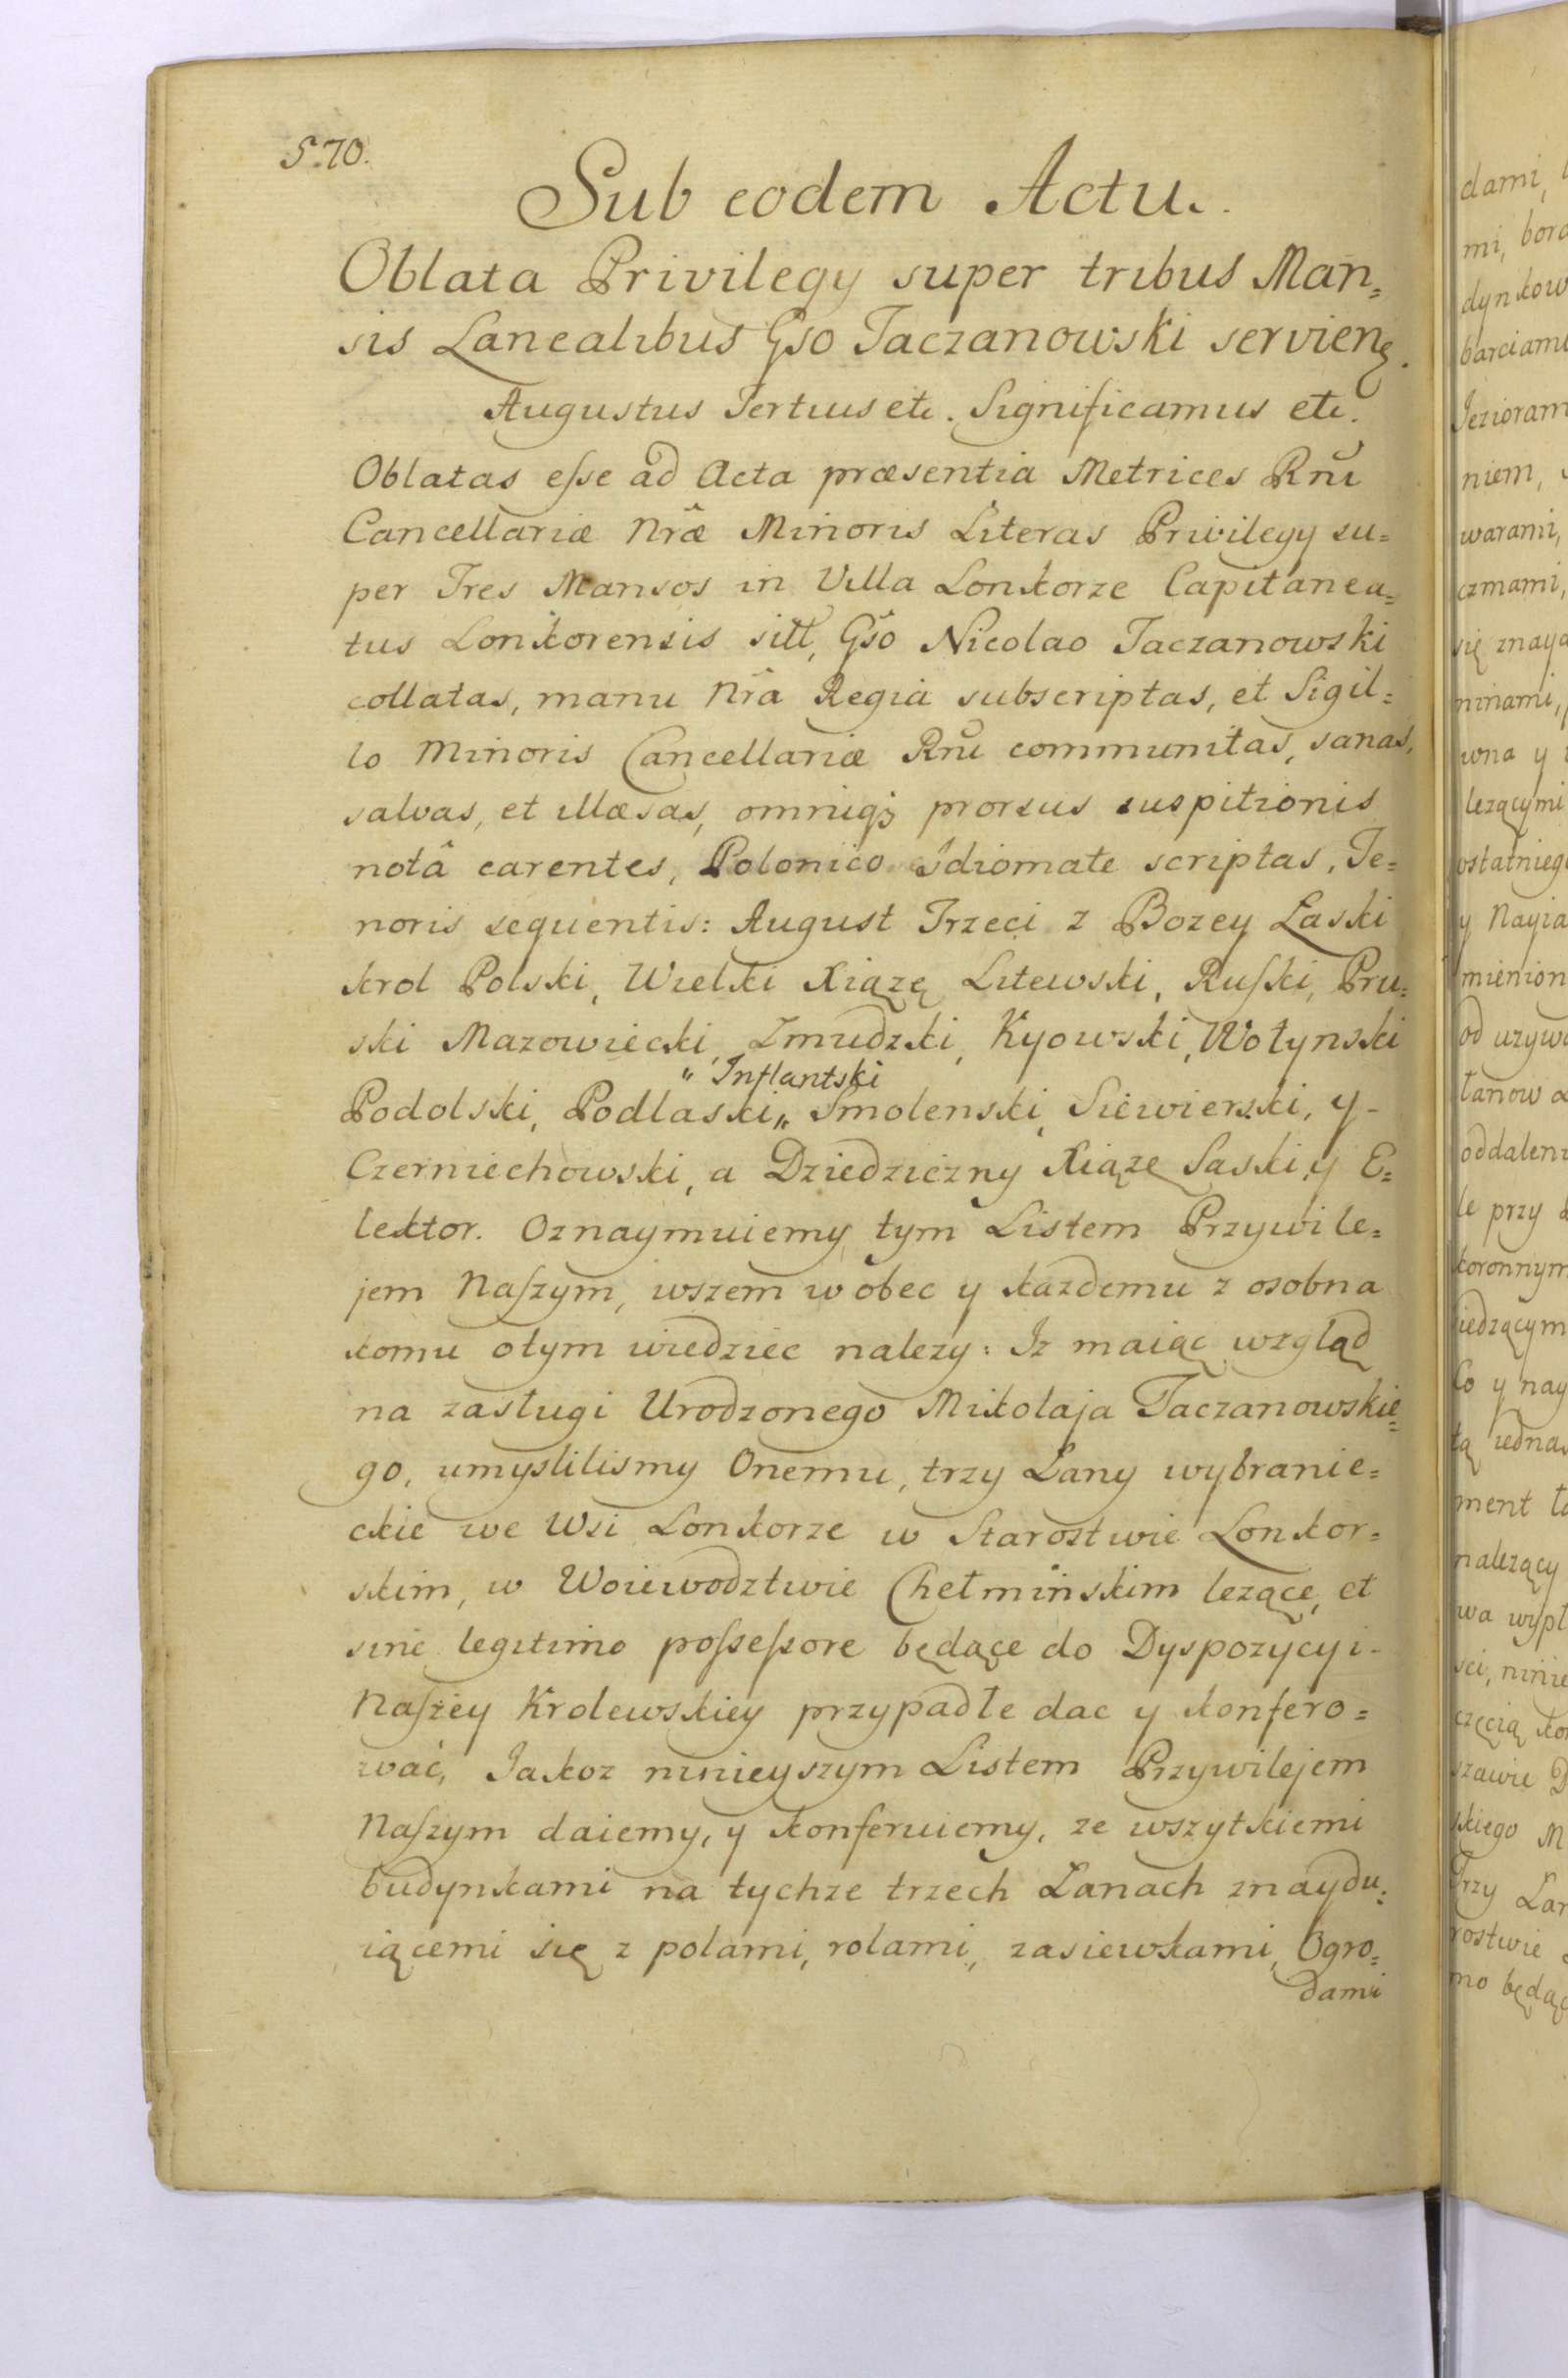 570.
Sub eodem Actu.
Oblata Privilegy super tribus Man=
sis Lanealibus Gso Taczanowski servien.
Augustus Tertius etc. Significamus etc.
Oblatas eſse ad Acta præsentia Metrices Rnĩ
Cancellariæ Nræ Minoris Literas Privilegy su=
per Tres Mansos in Villa Lonkorze Capitanea=
tus Lonkorensis sitt, Gso Nicolao Taczanowski
collatas, manu Nra Regia subscriptas, et Sigil=
lo Minoris Cancellariæ Rnĩ communitas, sanas,
salvas, et illæsas, omniq3 prorsus suspitionis
notâ carentes, Polonico Idiomate scriptas, Te=
noris sequentis: August Trzeci z Bozey Łaski
krol Polski, Wielki Xiązę Litewski, Ruſki, Pru=
ski Mazowiecki, Zmudzki, Kyowski, Wołynski
" Inflantski
Podolski, Podlaski,, Smolenski, Siewierski, y-
Czerniechowski, a Dziedziczny Xiąze Saski, y E=
lektor. Oznaymuiemy tym Listem Przywile=
jem Naſzym, wszem wobec y kazdemu z osobna
komu otym wiedziec nalezy: Iz maiąc wzgląd
na zasługi Urodzonego Mikolaja Taczanowskie=
go, umyslilismy Onemu, trzy Łany wybranie=
ckie we Wsi Lonkorze w Starostwie Lonkor=
skim, w Woiewodztwie Chełmińskim lezące, et
sine legitimo poſseſsore będące do Dyspozycyi-
Naſzey Krolewskiey przypadłe dac y konfero=
wać, Jakoz ninieyszym Listem Przywilejem
Naſzym daiemy, y konferuiemy, ze wszytkiemi
budynkami na tychze trzech Łanach znaydu=
iącemi się z polami, rolami, zasiewkami, Ogro=
dami
dami,
mi,
barciami
niem,
warami,
czmami,
się
ninami,
wna y
lezącymi
y
od
oddaleni
le przy
koronnym
Co y nay
ment
nalezący
Trzy